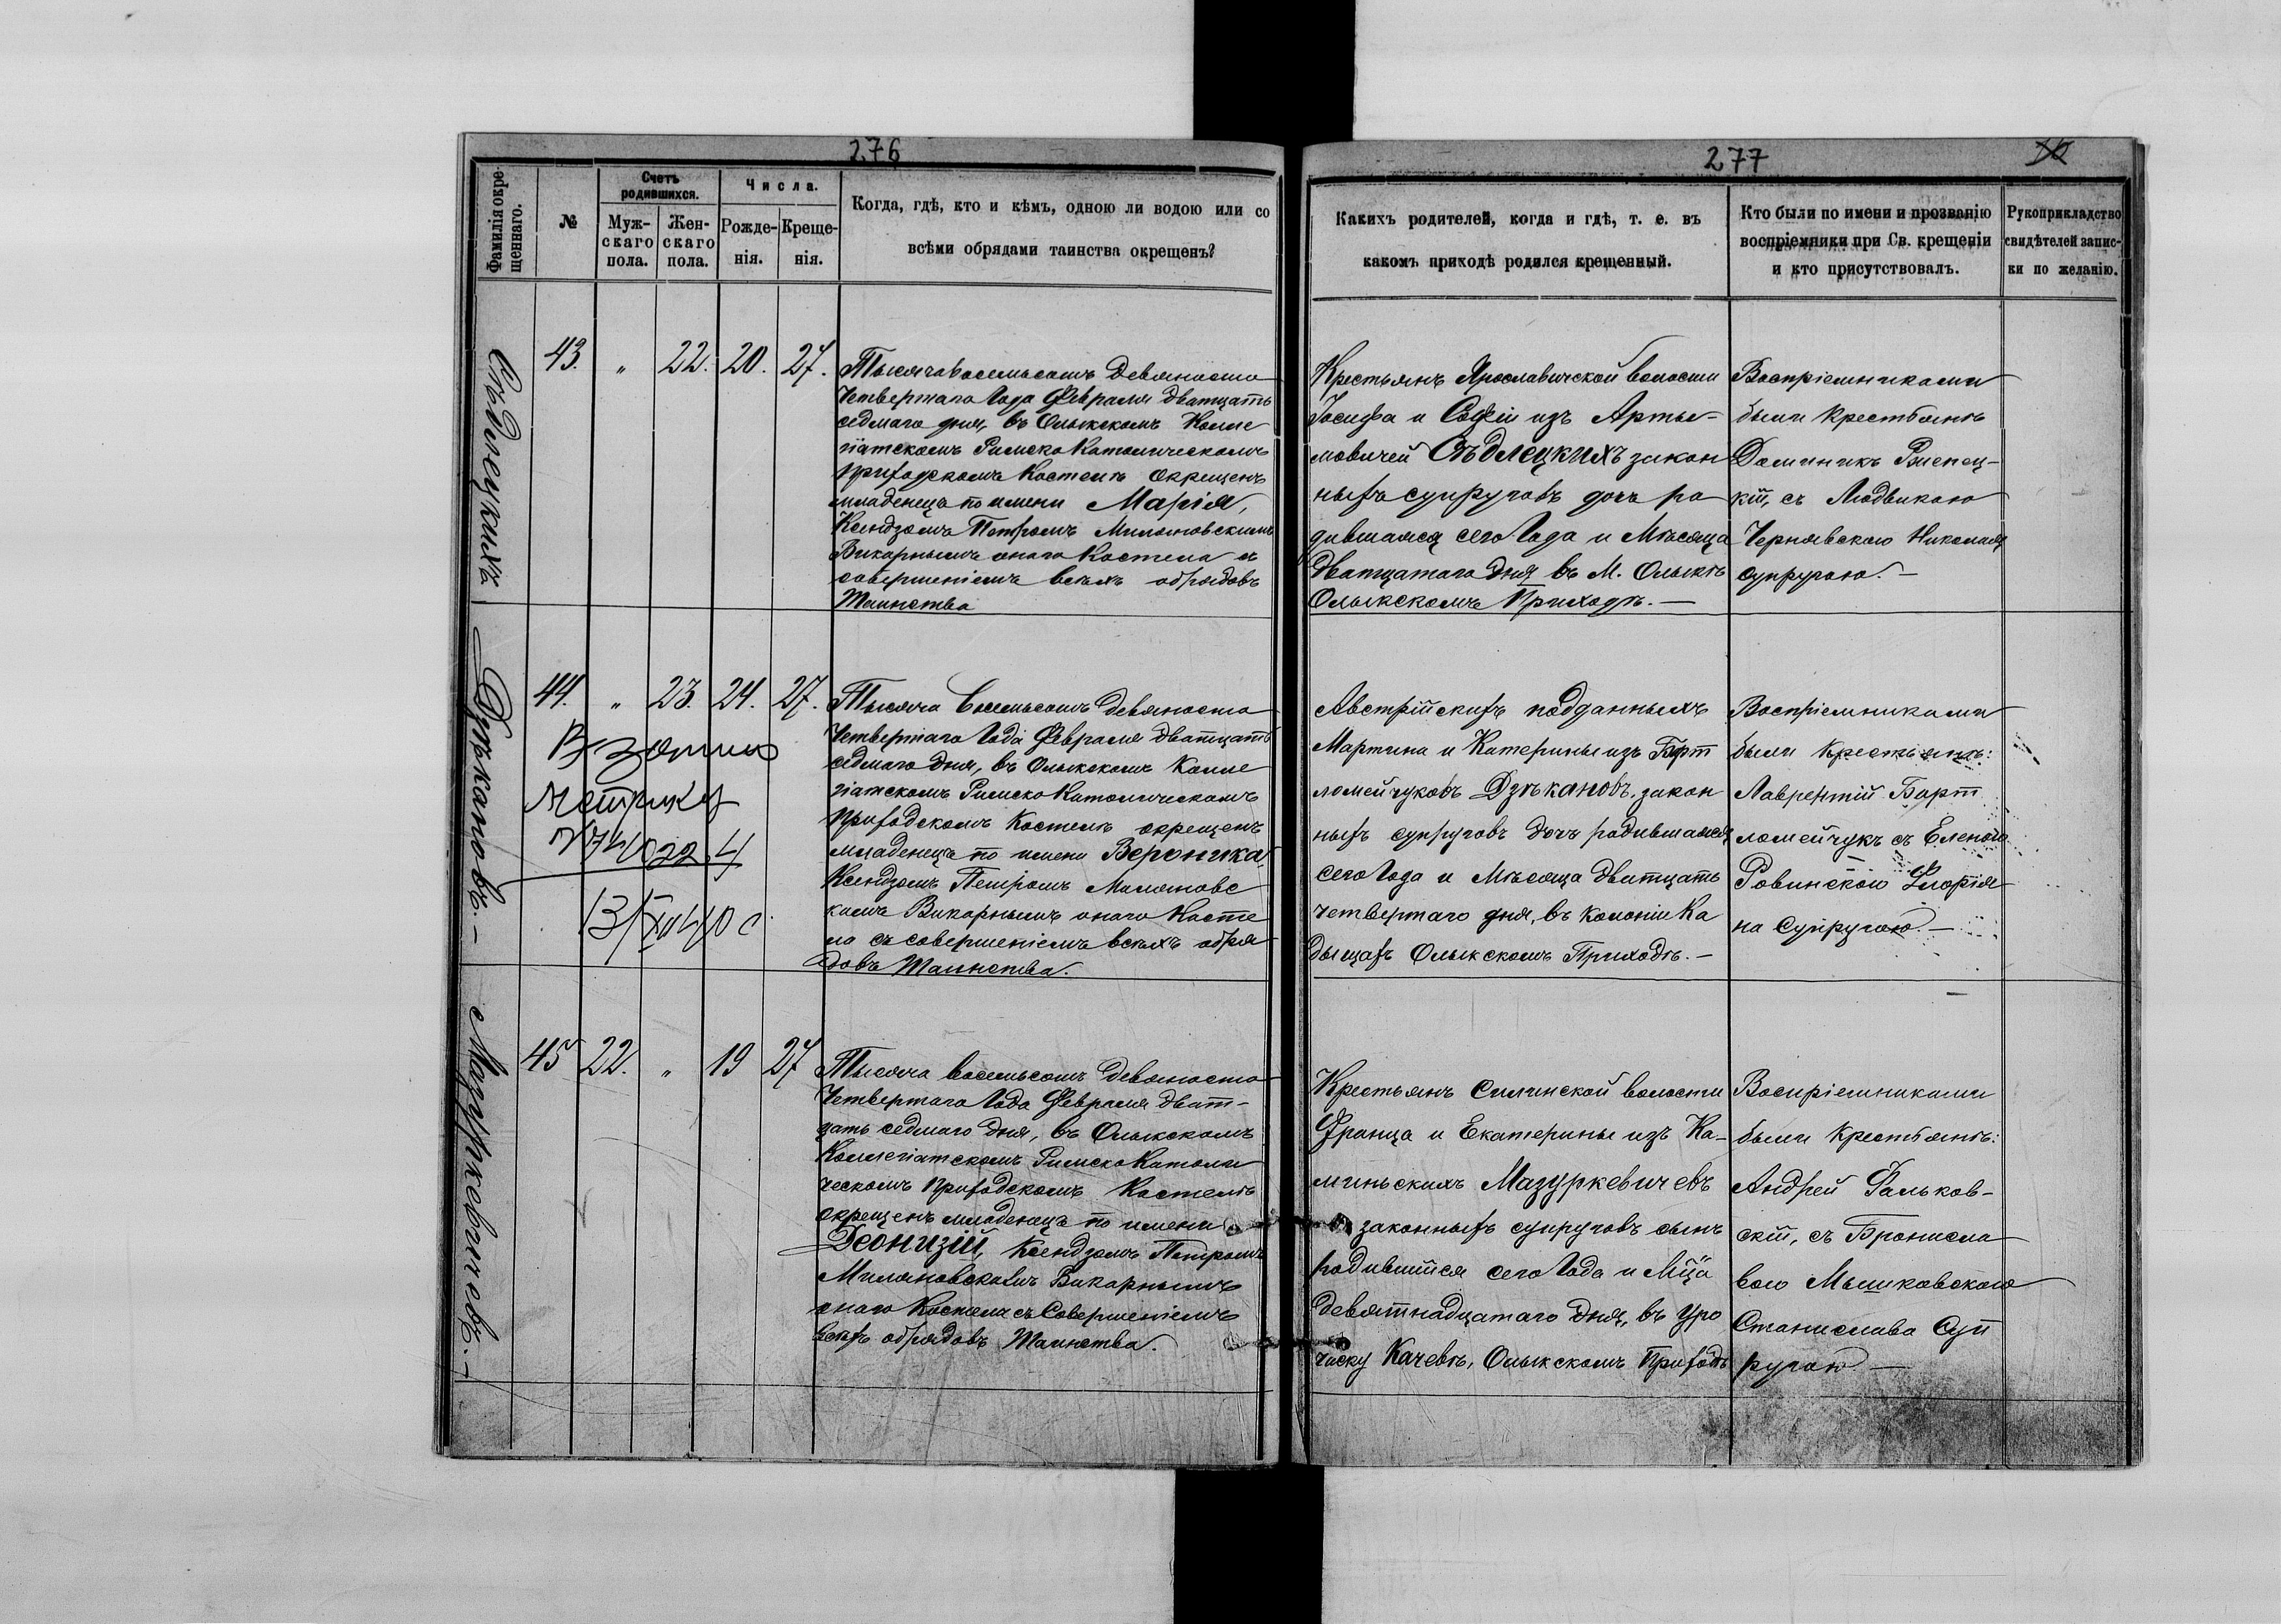 276
Фамилія окре-
щеннаго.
№
Счетъ
родившихся.
Муж-
скаго
пола.
Жен-
скаго
пола.
Числа.
Рожде-
нія.
Креще-
нія.
Когда, гдѣ, кто и кѣмъ, одною ли водою или со
всѣми обрядами таинства окрещенъ?
Сѣдлецкихъ
43. " 22. 20. 27.
Тысяча восемьсотъ девяносто
Четвертаго Года Февраля дватцать
седмаго дня, въ Олыкскомъ Колле
гіатскомъ Римско Католическомъ
приходскомъ Костелѣ окрещенъ
младенецъ по имени Марія,
Ксендзомъ Петромъ Миляновскимъ
Викарнымъ онаго Костела съ
совершеніемъ всѣхъ обрядовъ
Таинства
Дзѣкановъ. –
44. " 23. 24. 27.
Взятих
метрику
Тысяча Восемьсотъ девяносто
Четвертаго Года Февраля дватцать
седмаго дня, въ Олыкскомъ Колле
гіатскомъ Римско Католическомъ
приходскомъ Костелѣ окрещенъ
младенецъ по имени Вероника,
Ксендзомъ Петромъ Миляновс
кимъ Викарнымъ онаго Косте
ла съ совершеніемъ всѣхъ обря
довъ Таинства.
Мазуркевичевъ. –
45 22. " 19 27
Тысяча восемьсотъ девяносто
Четвертаго Года Февраля дват-
цать седмаго дня, въ Олыкскомъ
Коллегіатскомъ Римско Католи
ческомъ приходскомъ Костелѣ
окрещенъ младенецъ по имени
Деонизій, Ксендзомъ Петромъ
Миляновскимъ Викарнымъ
онаго Костела съ Совершеніемъ
всѣхъ обрядовъ Таинства.
277
Какихъ родителей, когда и гдѣ, т. е. въ
какомъ приходѣ родился крещенный.
Кто были по имени и прозванію
воспріемники при Св. крещеніи
и кто присутствовалъ.
Рукоприкладство
свидѣтелей запис-
ки по желанію.
Крестьянъ Ярославичской волости
Іосифа и Софіи изъ Арты-
мовичей Сѣдлецкихъ закон
ныхъ супруговъ дочь ро
дившаяся сего Года и Мѣсяца
двадцатаго дня въ М. Олыкѣ
Олыкскомъ Приходѣ. –
Воспріемниками
были крестьянѣ
Доминикъ
кій, съ Людвикою
Чернявскою Николая
супругою. –
Австрійскихъ подданныхъ
Мартина и Катерины изъ Барт
ломейчуковъ Дзѣкановъ, закон
ныхъ супруговъ дочь родившаяся
сего Года и Мѣсяца двитцать
четвертаго дня, въ колоніи Ка
дыщахъ Олыкскомъ Приходѣ. –
Воспріемниками
были крестьянѣ:
Лаврентій Барт
ломейчукъ съ Еленою
Ровинскою Флорія
на Супругою. –
Крестьянъ Силинской волости
Франца и Екатерины изъ Ка-
миньскихъ Мазуркевичевъ
законныхъ супруговъ сынъ
родившійся сего Года и Мца
девятнадцатаго дня, въ уро
чиску Качевѣ, Олыкскомъ Приходѣ
Воспріемниками
были крестьянѣ:
Андрей Фальков-
скій, съ Бронисла
вою Мышковскою
Станислава Суп
ругою –